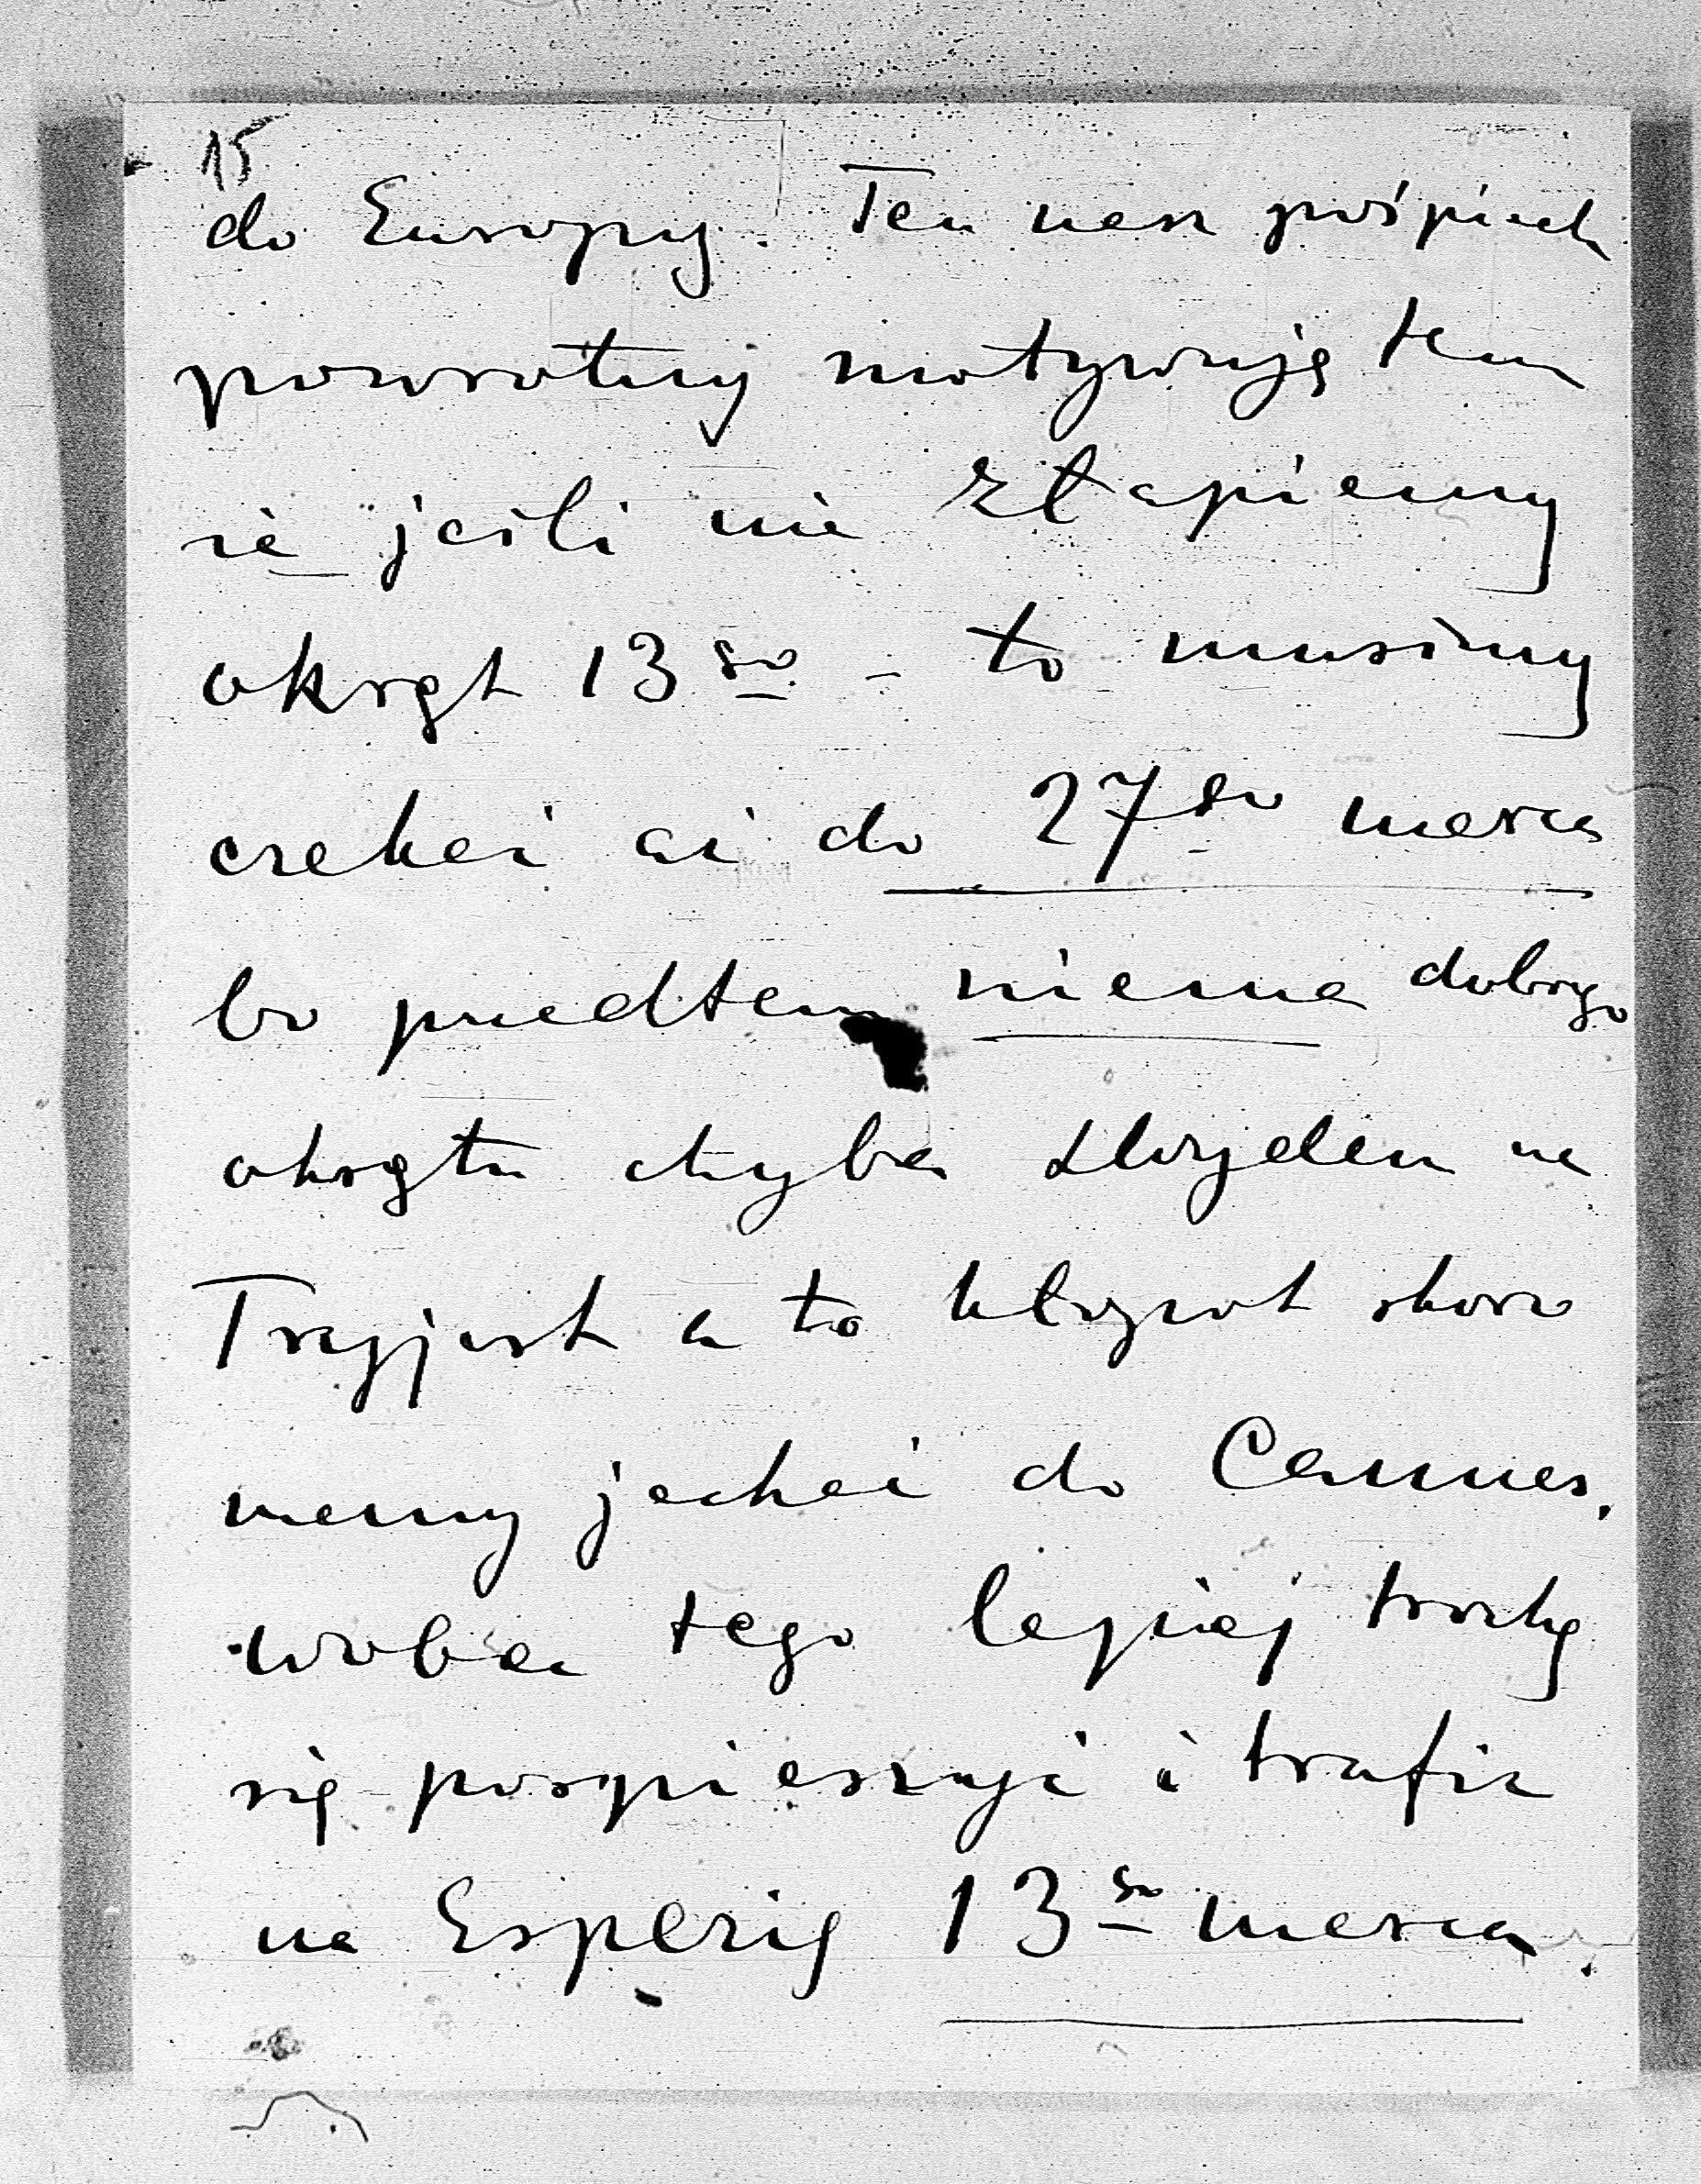 15
do Europy. Ten nasz pośpiech
powrotny motywuję tem
że jeśli nie złapiemy
okręt 13go - to musimy
czekać aż do 27go marca
bo przedtem niema dobrego
okrętu chyba Lloydem na
Tryjest a to kłopot skoro
mamy jechać do Cannes.
wobec tego lepiej trochę
się pospieszyć i trafić
na Esperię 13go marca.